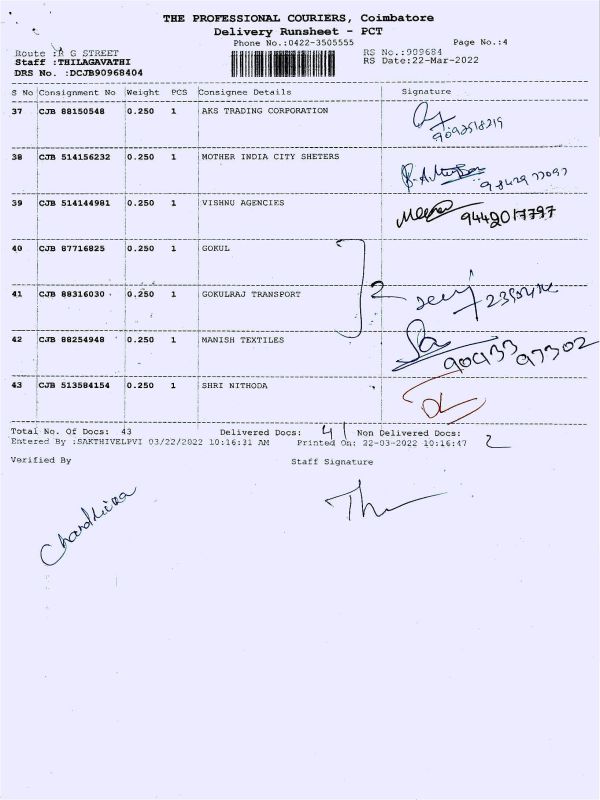 THE PROFESSIONAL COURIERS, Coimbatore
Delivery Runsheet - PCT
Phone No.:0422-3505555 Page No.:4
Route :R G STREET RS No.:909684
Staff :THILAGAVATHI RS Date:22-Mar-2022
DRS No. :DCJB90968404
S No Consignment No Weight PCS Consignee Details Signature
37 CJB 88150548 0.250 1 AKS TRADING CORPORATION
38 CJB 514156232 0.250 1 MOTHER INDIA CITY SHETERS
39 CJB 514144981 0.250 1 VISHNU AGENCIES
9442017797
40 CJB 87716825 0.250 1 GOKUL
2
41 CJB 88316030 0.250 1 GOKULRAJ TRANSPORT
42 CJB 88254948 0.250 1 MANISH TEXTILES
90433 97302
43 CJB 513584154 0.250 1 SHRI NITHODA
Total No. Of Docs: 43 Delivered Docs: 41 Non Delivered Docs: 2
Entered By :SAKTHIVELPVI 03/22/2022 10:16:31 AM Printed On: 22-03-2022 10:16:47
Verified By Staff Signature